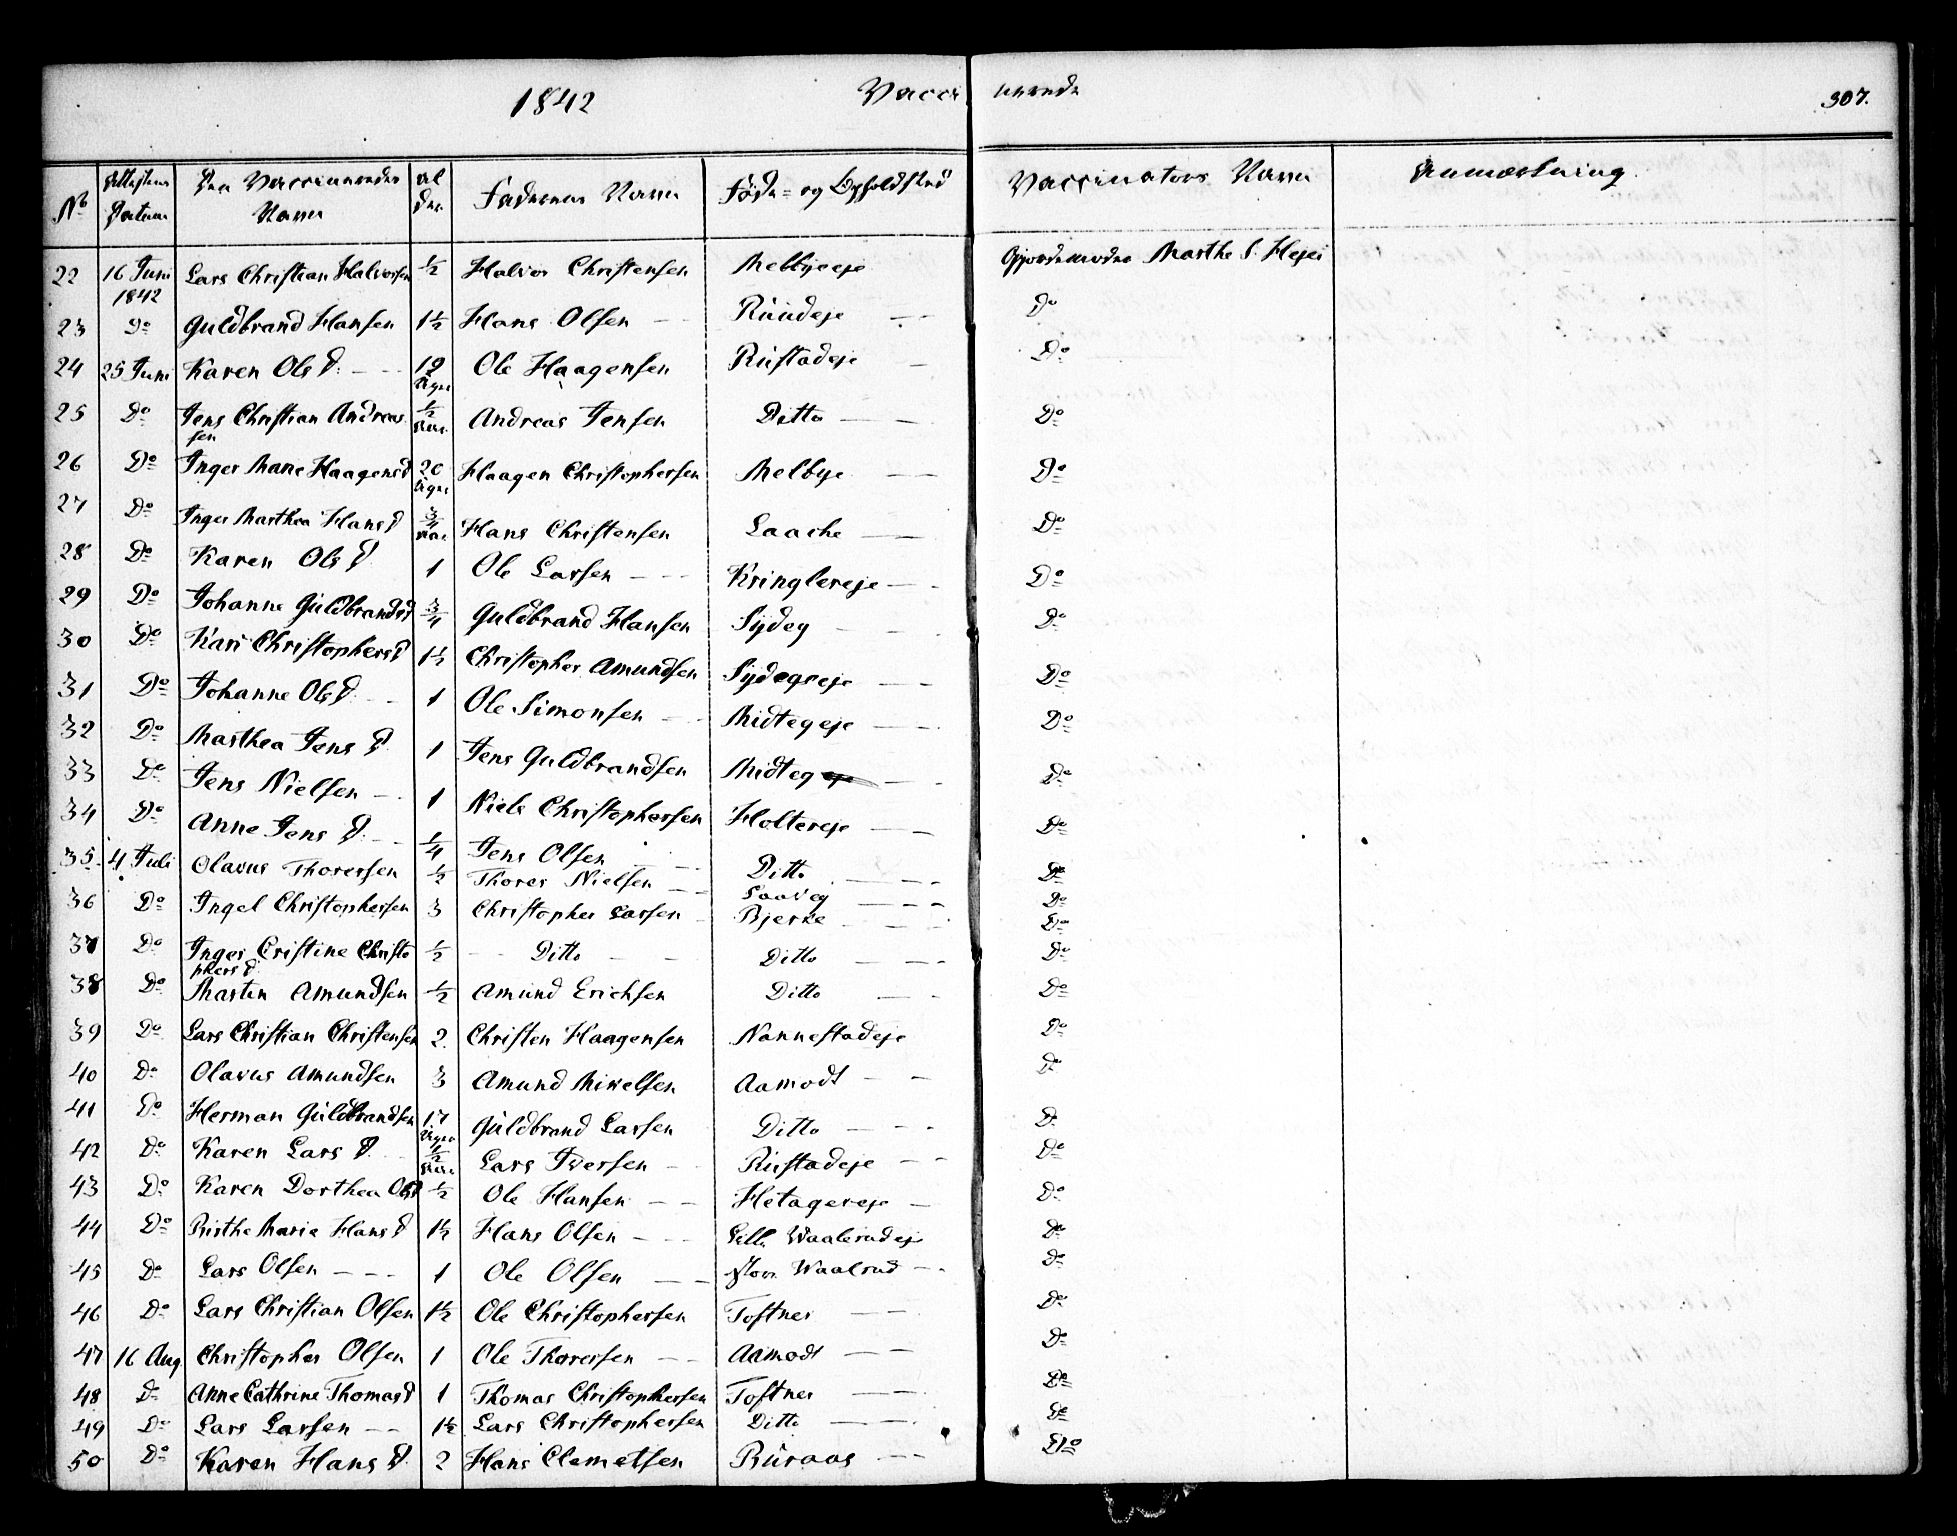 1842 Vaccinerede 307.
No Attestens Datum Den Vaccineredes Navn Alder Faderens Navn Føde- og Opholdsted Vaccinators Navn Anmærkning.
22 16 Juni 1842 Lars Christian Halvorsen ½ Halvor Christensen Melbyeeje Gjordemoder Marthe S.
23 Do Guldbrand Hansen 1½ Hans Olsen Ruudeje Do
24 25 Juni Karen Ols D. 19 Uger Ole Haagensen Rustadeje Do
25 Do Jens Christian Andreassen ½ Aar Andreas Jensen Ditto Do
26 Do Inger Marie Haagensd 20 Uger Haagen Christophersen Melbye Do
27 Do Inger Marthea Hans D ¾ Aar Hans Christensen Laache Do
28 Do Karen Ols D 1 Ole Larsen Kringlereje Do
29 Do Johanne Guldbrandsd ¾ Guldbrand Hansen Sydeg Do
30 Do Kari Christophersd 1½ Christopher Amundsen Sydegseje Do
31 Do Johanne Ols D. 1 Ole Simonsen Midtegeje Do
32 Do Marthea Jens D 1 Jens Guldbrandsen Midteg eje Do
33 Do Jens Nielsen 1 Niels Christophersen Holtereje Do
34 Do Anne Jens D. ¼ Jens Olsen Ditto Do
35. 4 Juli Olavus Thoresen ½ Thores Nielsen Laaveg Do
36 Do Ingel Christophersen 3 Christopher Larsen Bjerke Do
37 Do Inger Cristine Christophersd ½ Ditto Ditto Do
38 Do Martin Amundsen ½ Amund Erichsen Ditto Do
39 Do Lars Christian Christensen 2. Christen Haagensen Nannestadeje Do
40 Do Olavus Amundsen 3 Amund Mikelsen Aamodt Do
41 Do Herman Guldbrandsen 17 Uger Guldbrand Larsen Ditto Do
42 Do Karen Lars D. ½ Aar Lars Iversen Rustadeje Do
43 Do Karen Dorthea Ols D ½ Ole Hansen Hetagereje Do
44 Do Birthe Marie Hans D 1½ Hans Olsen Lille Waalerudeje Do
45 Do Lars Olsen 1 Ole Olsen Store Waalrud Do
46 Do Lars Christian Olsen 1½ Ole Christophersen Toftner Do
47 16 Aug Christopher Olsen 1 Ole Thorersen Aamodt Do
48 Do Anne Cathrine Thomasd 1 Thomas Christophersen Toftner Do
49 Do Lars Larsen 1½ Lars Christophersen Ditto Do
50 Do Karen Hans D. 2 Hans Clemetsen Buraas Do